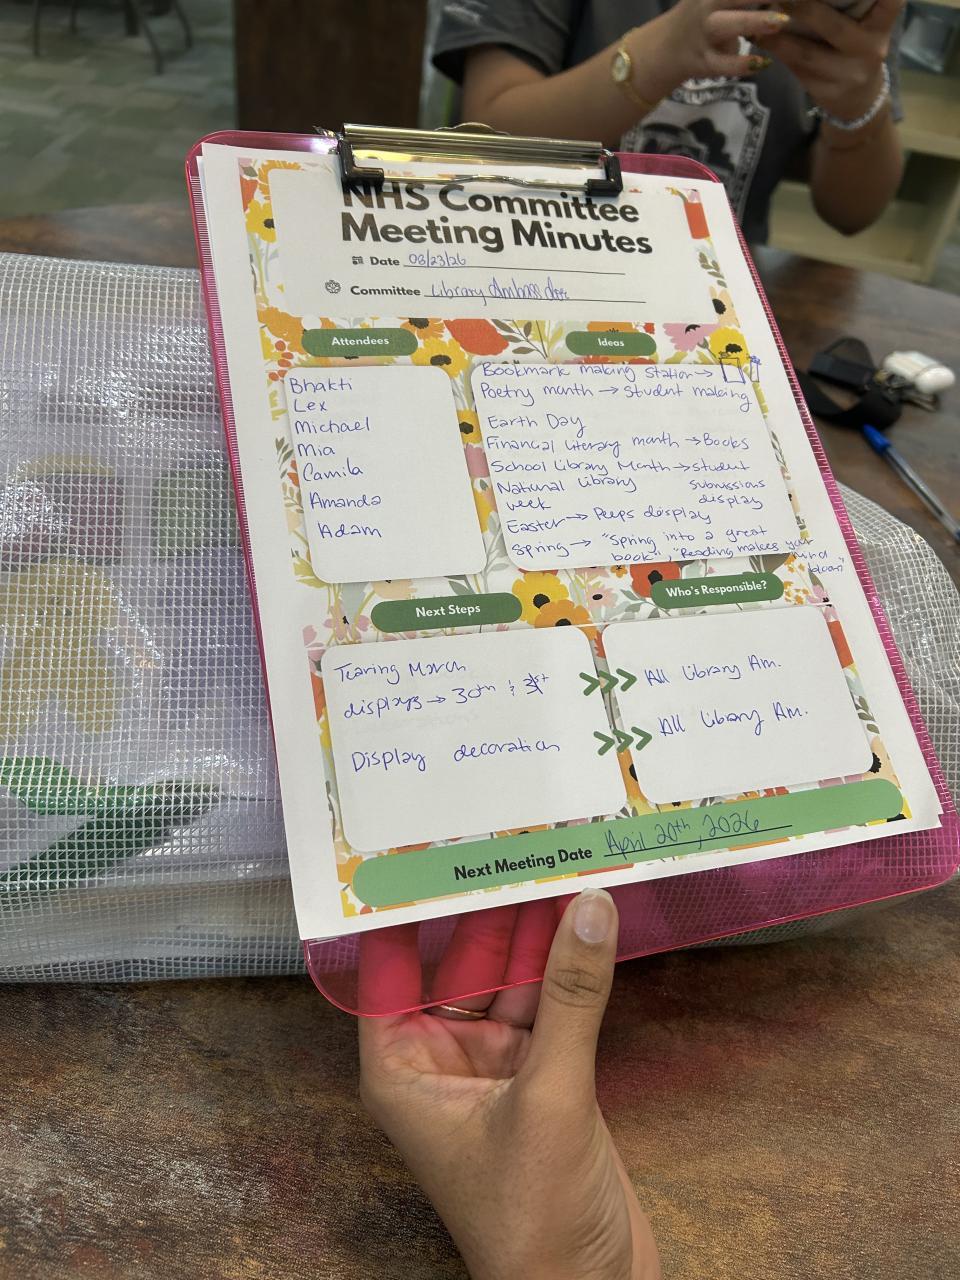 NHS Committee
Meeting Minutes
Date 03/23/26
Committee Library Ambass
Attendees
Bhakti
Lex
Michael
Mia
Camila
Amanda
Adam
Ideas
Bookmark making station →
Poetry month → Student making
Earth Day
Financial literary month → Books
School Library Month → student
submissions
display
National library
week
Easter → Peeps display
Spring → "Spring into a great
book", "Reading makes your
mind
bloom"
Next Steps
Tearing March
displays → 30th & 31st
Display decoration
Who's Responsible?
All Library Am.
All Library Am.
Next Meeting Date April 20th, 2026